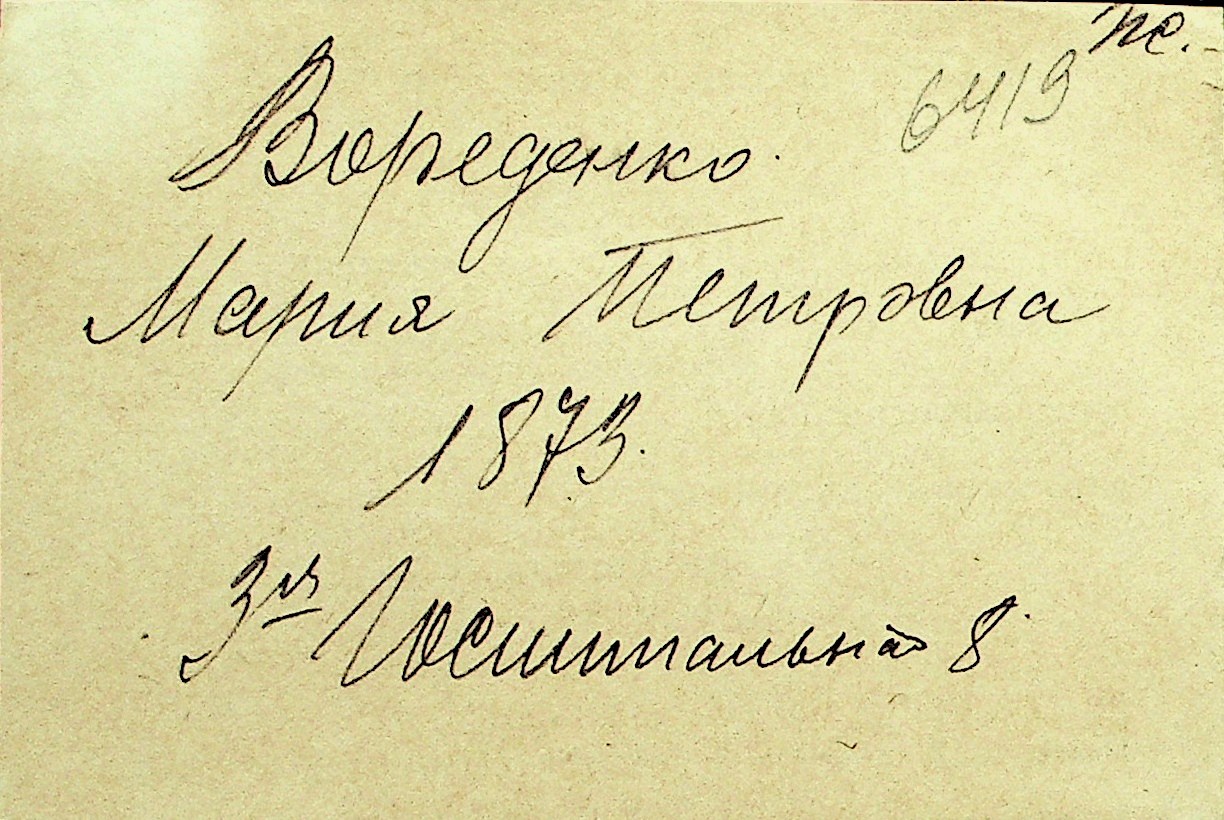 пе.
6419
Вореденко
Мария Петровна
1873.
3я Госпитальная 8